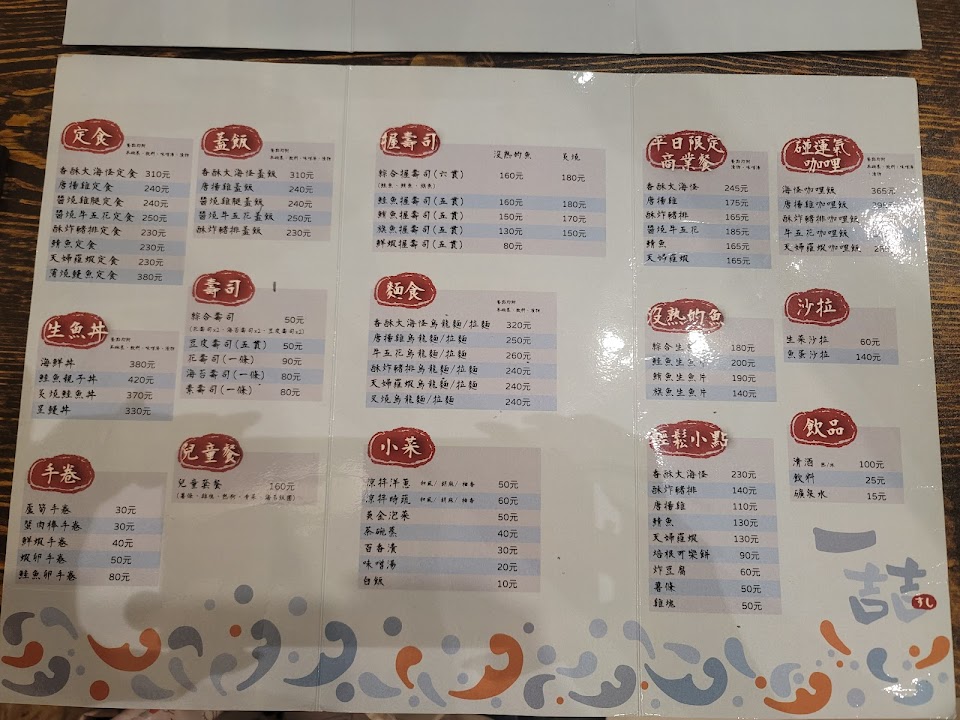 定食
香酥大海怪定食 310元
唐揚雞定食 240元
醬燒雞腿定食 240元
醬燒牛五花定食 250元
酥炸豬排定食 230元
鯖魚定食 230元
天婦羅蝦定食 230元
蒲燒鰻魚定食 380元
蓋飯
香酥大海怪蓋飯 310元
唐揚雞蓋飯 240元
醬燒雞腿蓋飯 240元
醬燒牛五花蓋飯 250元
酥炸豬排蓋飯 230元
生魚丼
海鮮丼 380元
鮭魚親子丼 420元
炙燒鮭魚丼 370元
星鰻丼 330元
壽司
綜合壽司 50元
豆皮壽司(五貫) 50元
花壽司(一條) 90元
海苔壽司(一條) 80元
素壽司(一條) 80元
手卷
蘆筍手卷 30元
蟹肉棒手卷 30元
鮮蝦手卷 40元
蝦卵手卷 50元
鮭魚卵手卷 80元
兒童餐
兒童菜餐 160元
握壽司
沒熟的魚 炙燒
綜合握壽司(六貫) 160元 180元
鮭魚握壽司(五貫) 160元 180元
鮪魚握壽司(五貫) 150元 170元
旗魚握壽司(五貫) 130元 150元
鮮蝦握壽司(五貫) 80元
麵食
香酥大海怪烏龍麵/拉麵 320元
唐揚雞烏龍麵/拉麵 250元
牛五花烏龍麵/拉麵 260元
酥炸豬排烏龍麵/拉麵 240元
天婦羅蝦烏龍麵/拉麵 240元
叉燒烏龍麵/拉麵 240元
小菜
涼拌洋蔥 50元
涼拌時蔬 60元
黃金泡菜 50元
茶碗蒸 40元
百香漬 30元
味噌湯 20元
白飯 10元
平日限定
商業餐
香酥大海怪 245元
唐揚雞 175元
酥炸豬排 165元
醬燒牛五花 185元
鯖魚 165元
天婦羅蝦 165元
碰運氣
咖哩
海怪咖哩飯 365元
唐揚雞咖哩飯
酥炸豬排咖哩飯
牛五花咖哩飯
天婦羅蝦咖哩飯
沒熟的魚
綜合生魚片 180元
鮭魚生魚片 200元
鮪魚生魚片 190元
旗魚生魚片 140元
沙拉
生菜沙拉 60元
魚蛋沙拉 140元
輕鬆小點
香酥大海怪 230元
酥炸豬排 140元
唐揚雞 110元
鯖魚 130元
天婦羅蝦 130元
培根可樂餅 90元
炸豆腐 60元
薯條 50元
雞塊 50元
飲品
清酒 100元
飲料 25元
礦泉水 15元
一喆
すし